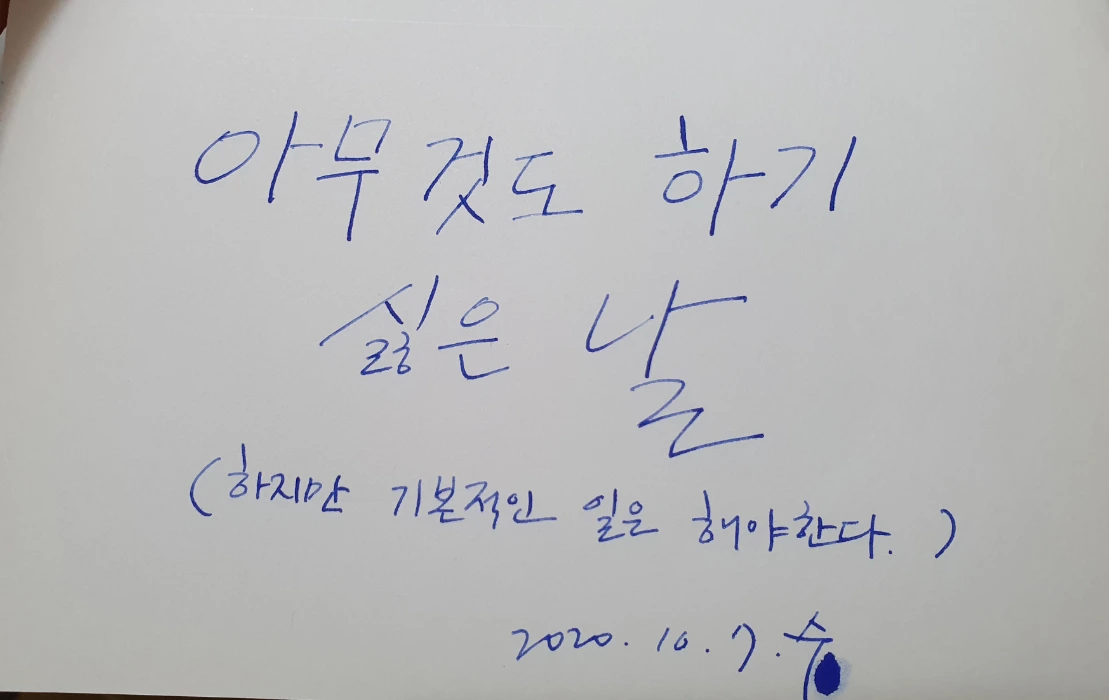 아무것도 하기
싫은 날
(하지만 기본적인 일은 해야한다.)
2020. 10. 7. 수